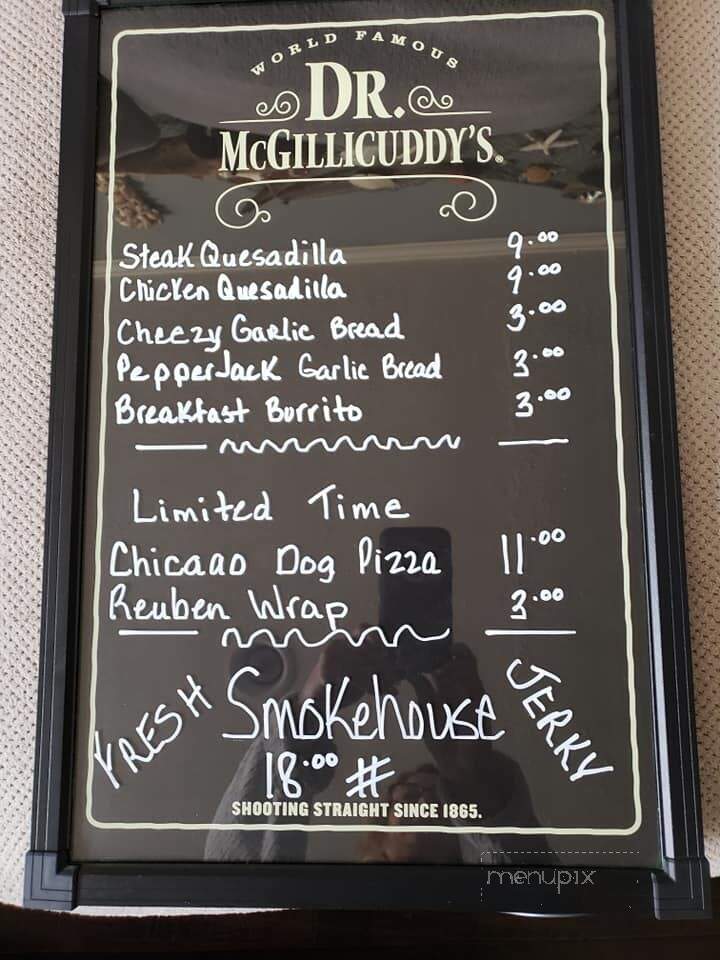 WORLD FAMOUS
DR.
McGILLICUDDY'S.
Steak Quesadilla 9.00
Chicken Quesadilla 9.00
Cheezy Garlic Bread 3.00
PepperJack Garlic Bread 3.00
Breakfast Burrito 3.00
Limited Time
Chicago Dog Pizza 11.00
Reuben Wrap 3.00
FRESH Smokehouse JERKY
18.00 #
SHOOTING STRAIGHT SINCE 1865.
menupix